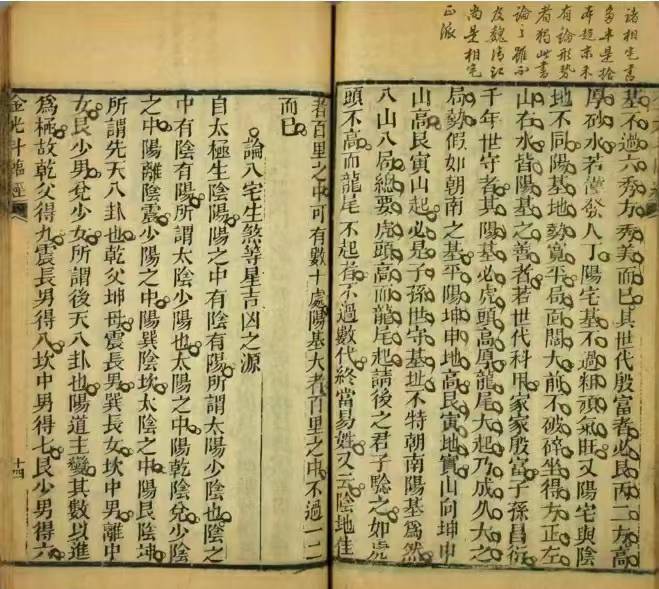 諸相宅書
多半是捨
本趨末未
有論形勢
者獨此書
論之雖不
及魏清江
尚是相宅
正派
基不過六秀方秀美而已其世代殷富者必艮丙二方高
厚砂水若催發人丁陽宅基不過粗頑氣旺又陽宅與陰
地不同陽基地勢寬平局面闊大前不破碎坐得方正左
山右水皆陽基之善者若世代科甲家家殷富子孫昌衍
千年世守者其陽基必虎頭高厚龍尾大起乃成久大之
局勢假如朝南之基平陽坤申地高艮寅地實山向坤申
山高艮寅山起必是子孫世守基址不特朝南陽基為然
八山八局總要虎頭高而龍尾起請後之君子驗之如虎
頭不高而龍尾不起者不過數代終當易姓又云陰地佳
者百里之中可有數十處陽基大者百里之中不過一二
而已
論八宅生煞等星吉凶之源
自太極生陰陽陽之中有陰有陽所謂太陽少陰也陰之
中有陰有陽所謂太陰少陽也太陽之中陽乾陰兌少陰
之中陽離陰震少陽之中陽巽陰坎太陰之中陽艮陰坤
所謂先天八卦也乾父坤母震長男巽長女坎中男離中
女艮少男兌少女所謂後天八卦也陽道主變其數以進
為極故乾父得九震長男得八坎中男得七艮少男得六
金光斗臨經
十四